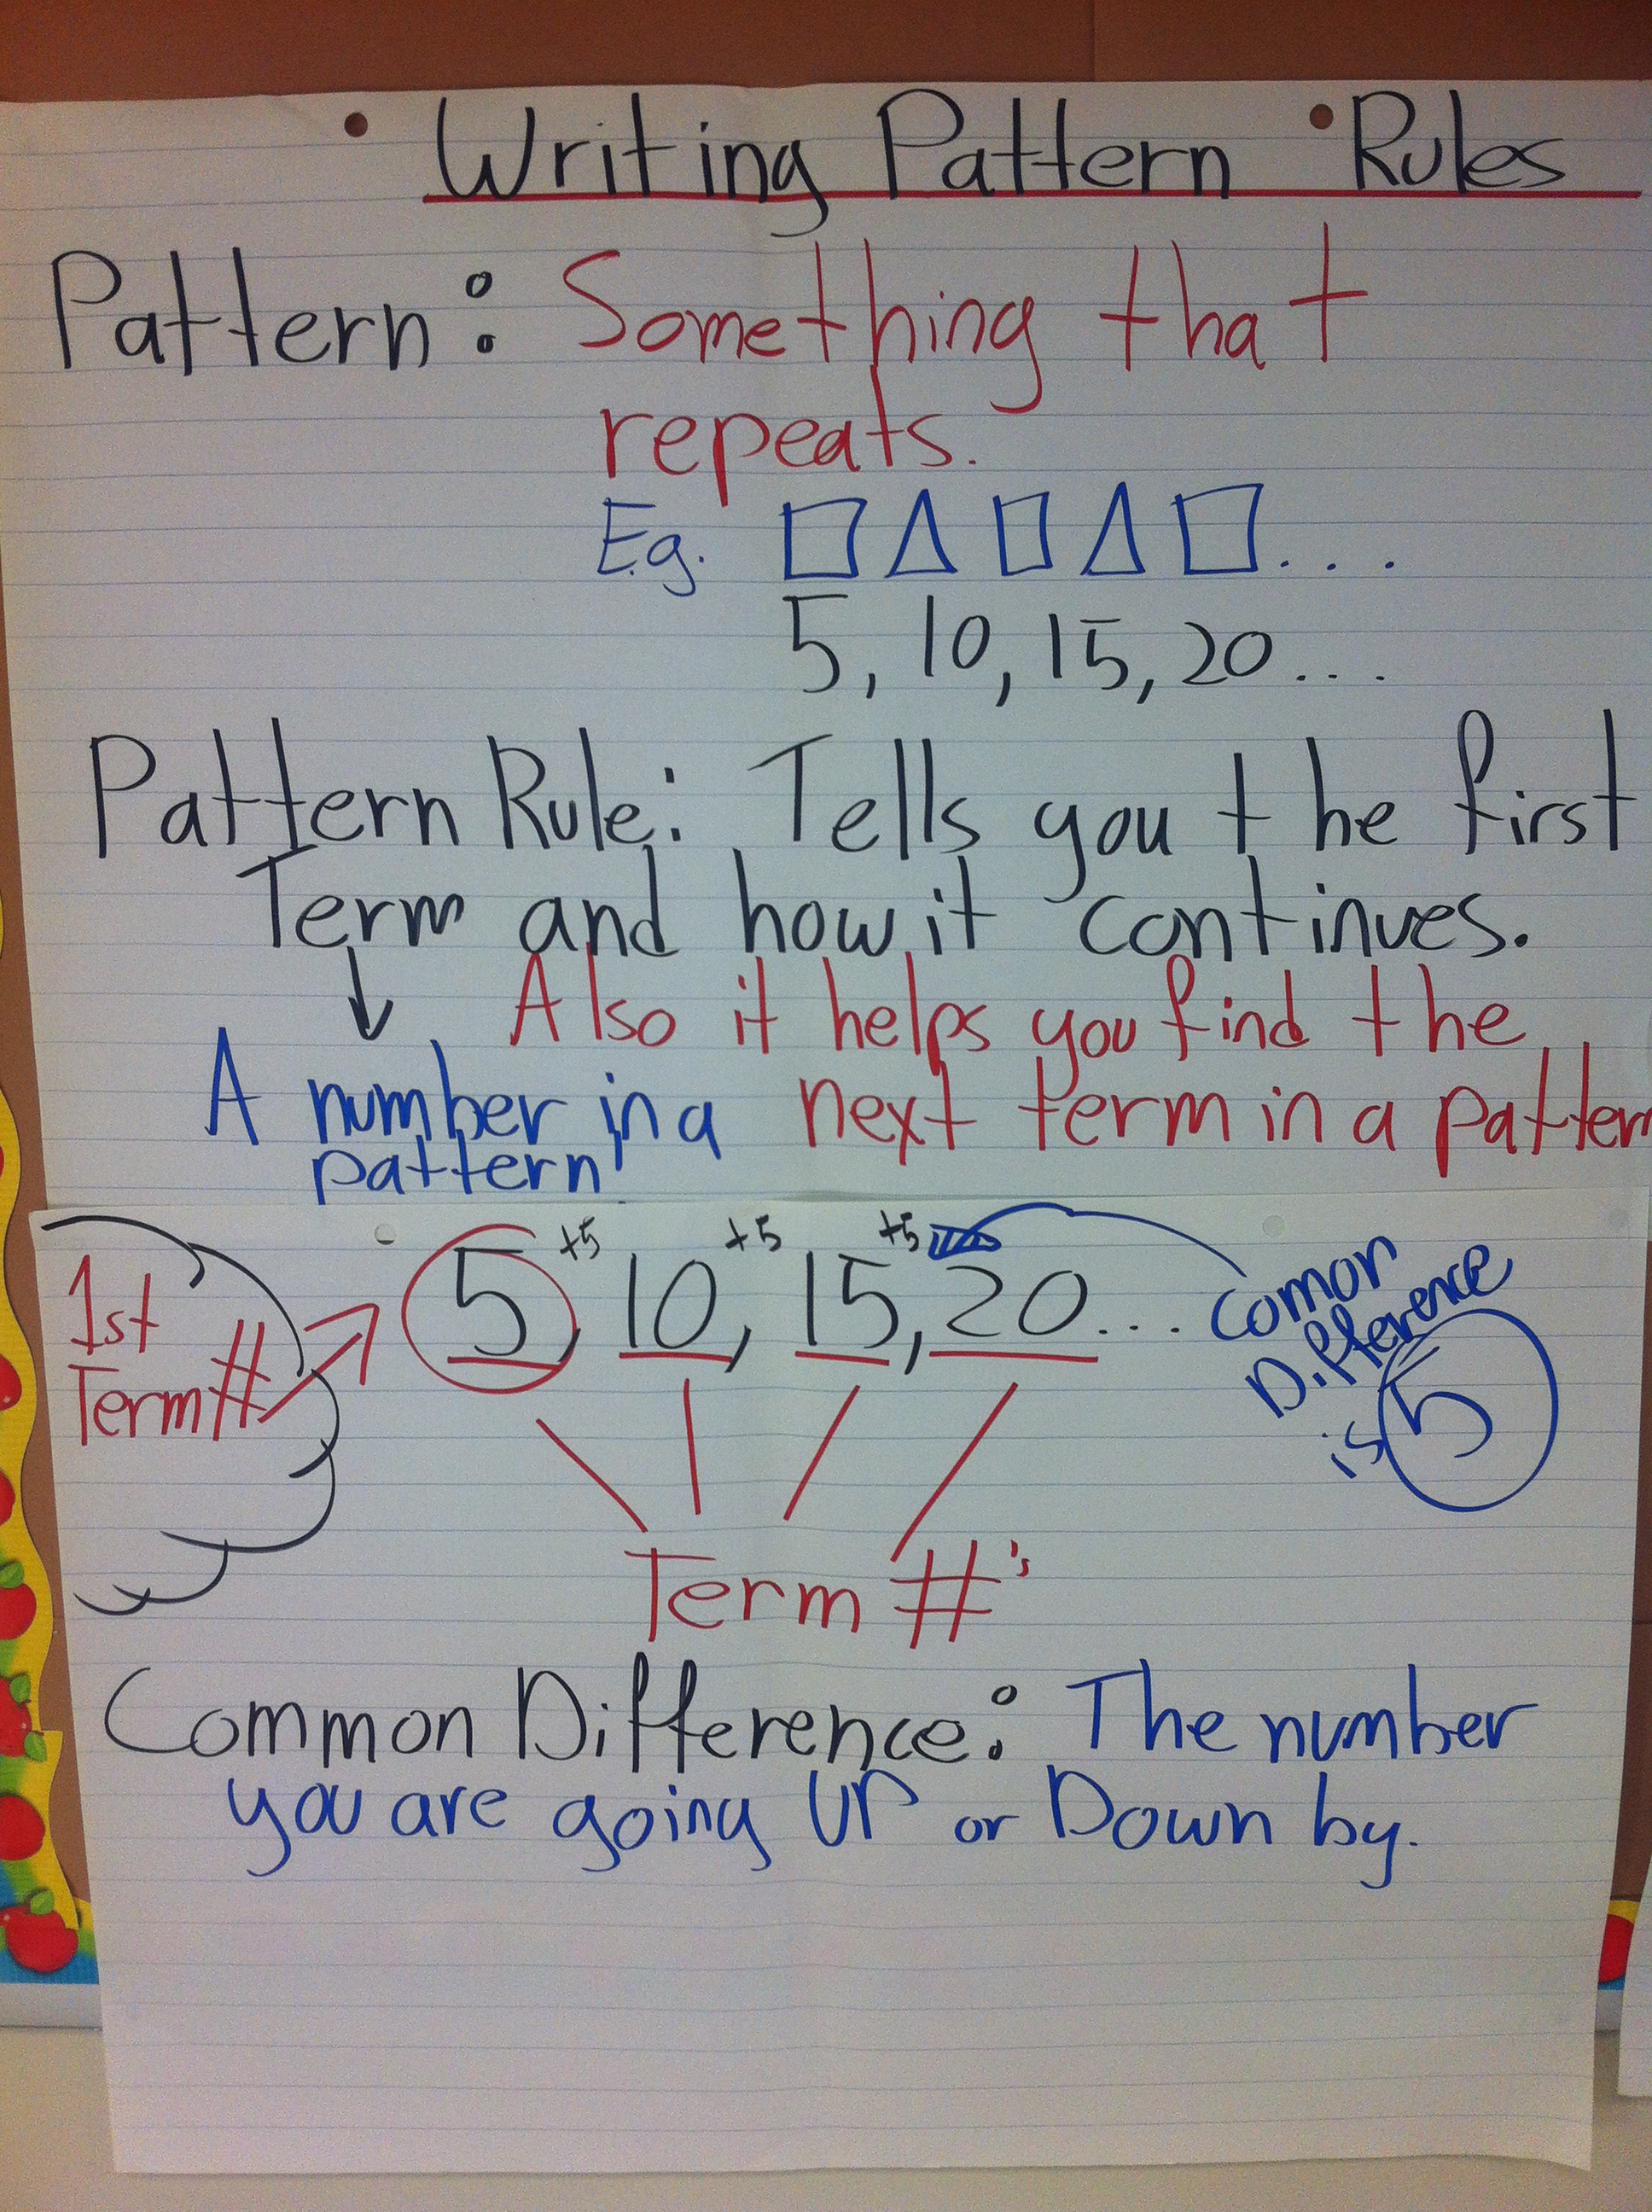 Writing Pattern Rules
Pattern: Something that
repeats.
E.g. ...
5, 10, 15, 20...
Pattern Rule: Tells you the first
Term and how it continues.
Also it helps you find the
next term in a pattern
A number in a
pattern
+5 +5 +5
1st
Term #
5, 10, 15, 20...
comon
Difference
is 5
Term #'s
Common Difference: The number
you are going UP or Down by.